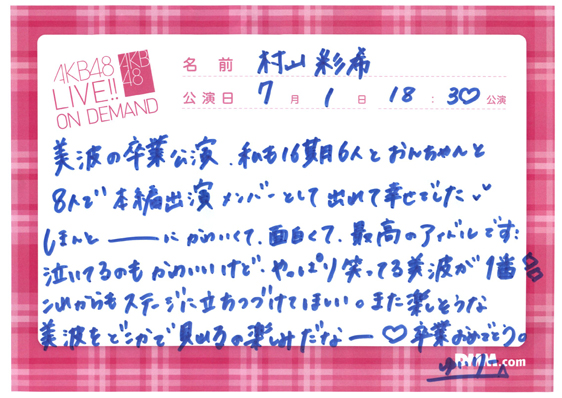 AKB48
LIVE!!
ON DEMAND
AKB
48
名前 村山彩希
公演日 7月1日 18:30♡公演
美波の卒業公演、私も16期6人とおんちゃんと
8人で本編出演メンバーとして出れて幸せでした
ほんと——にかわいくて、面白くて、最高のアイドルです!
泣いてるのもかわいいけど、やっぱり笑ってる美波が1番
これからもステージに立ちつづけてほしい。また楽しそうな
美波をどこかで見れるの楽しみだなー♡卒業おめでとう。
.com
ゆいりー